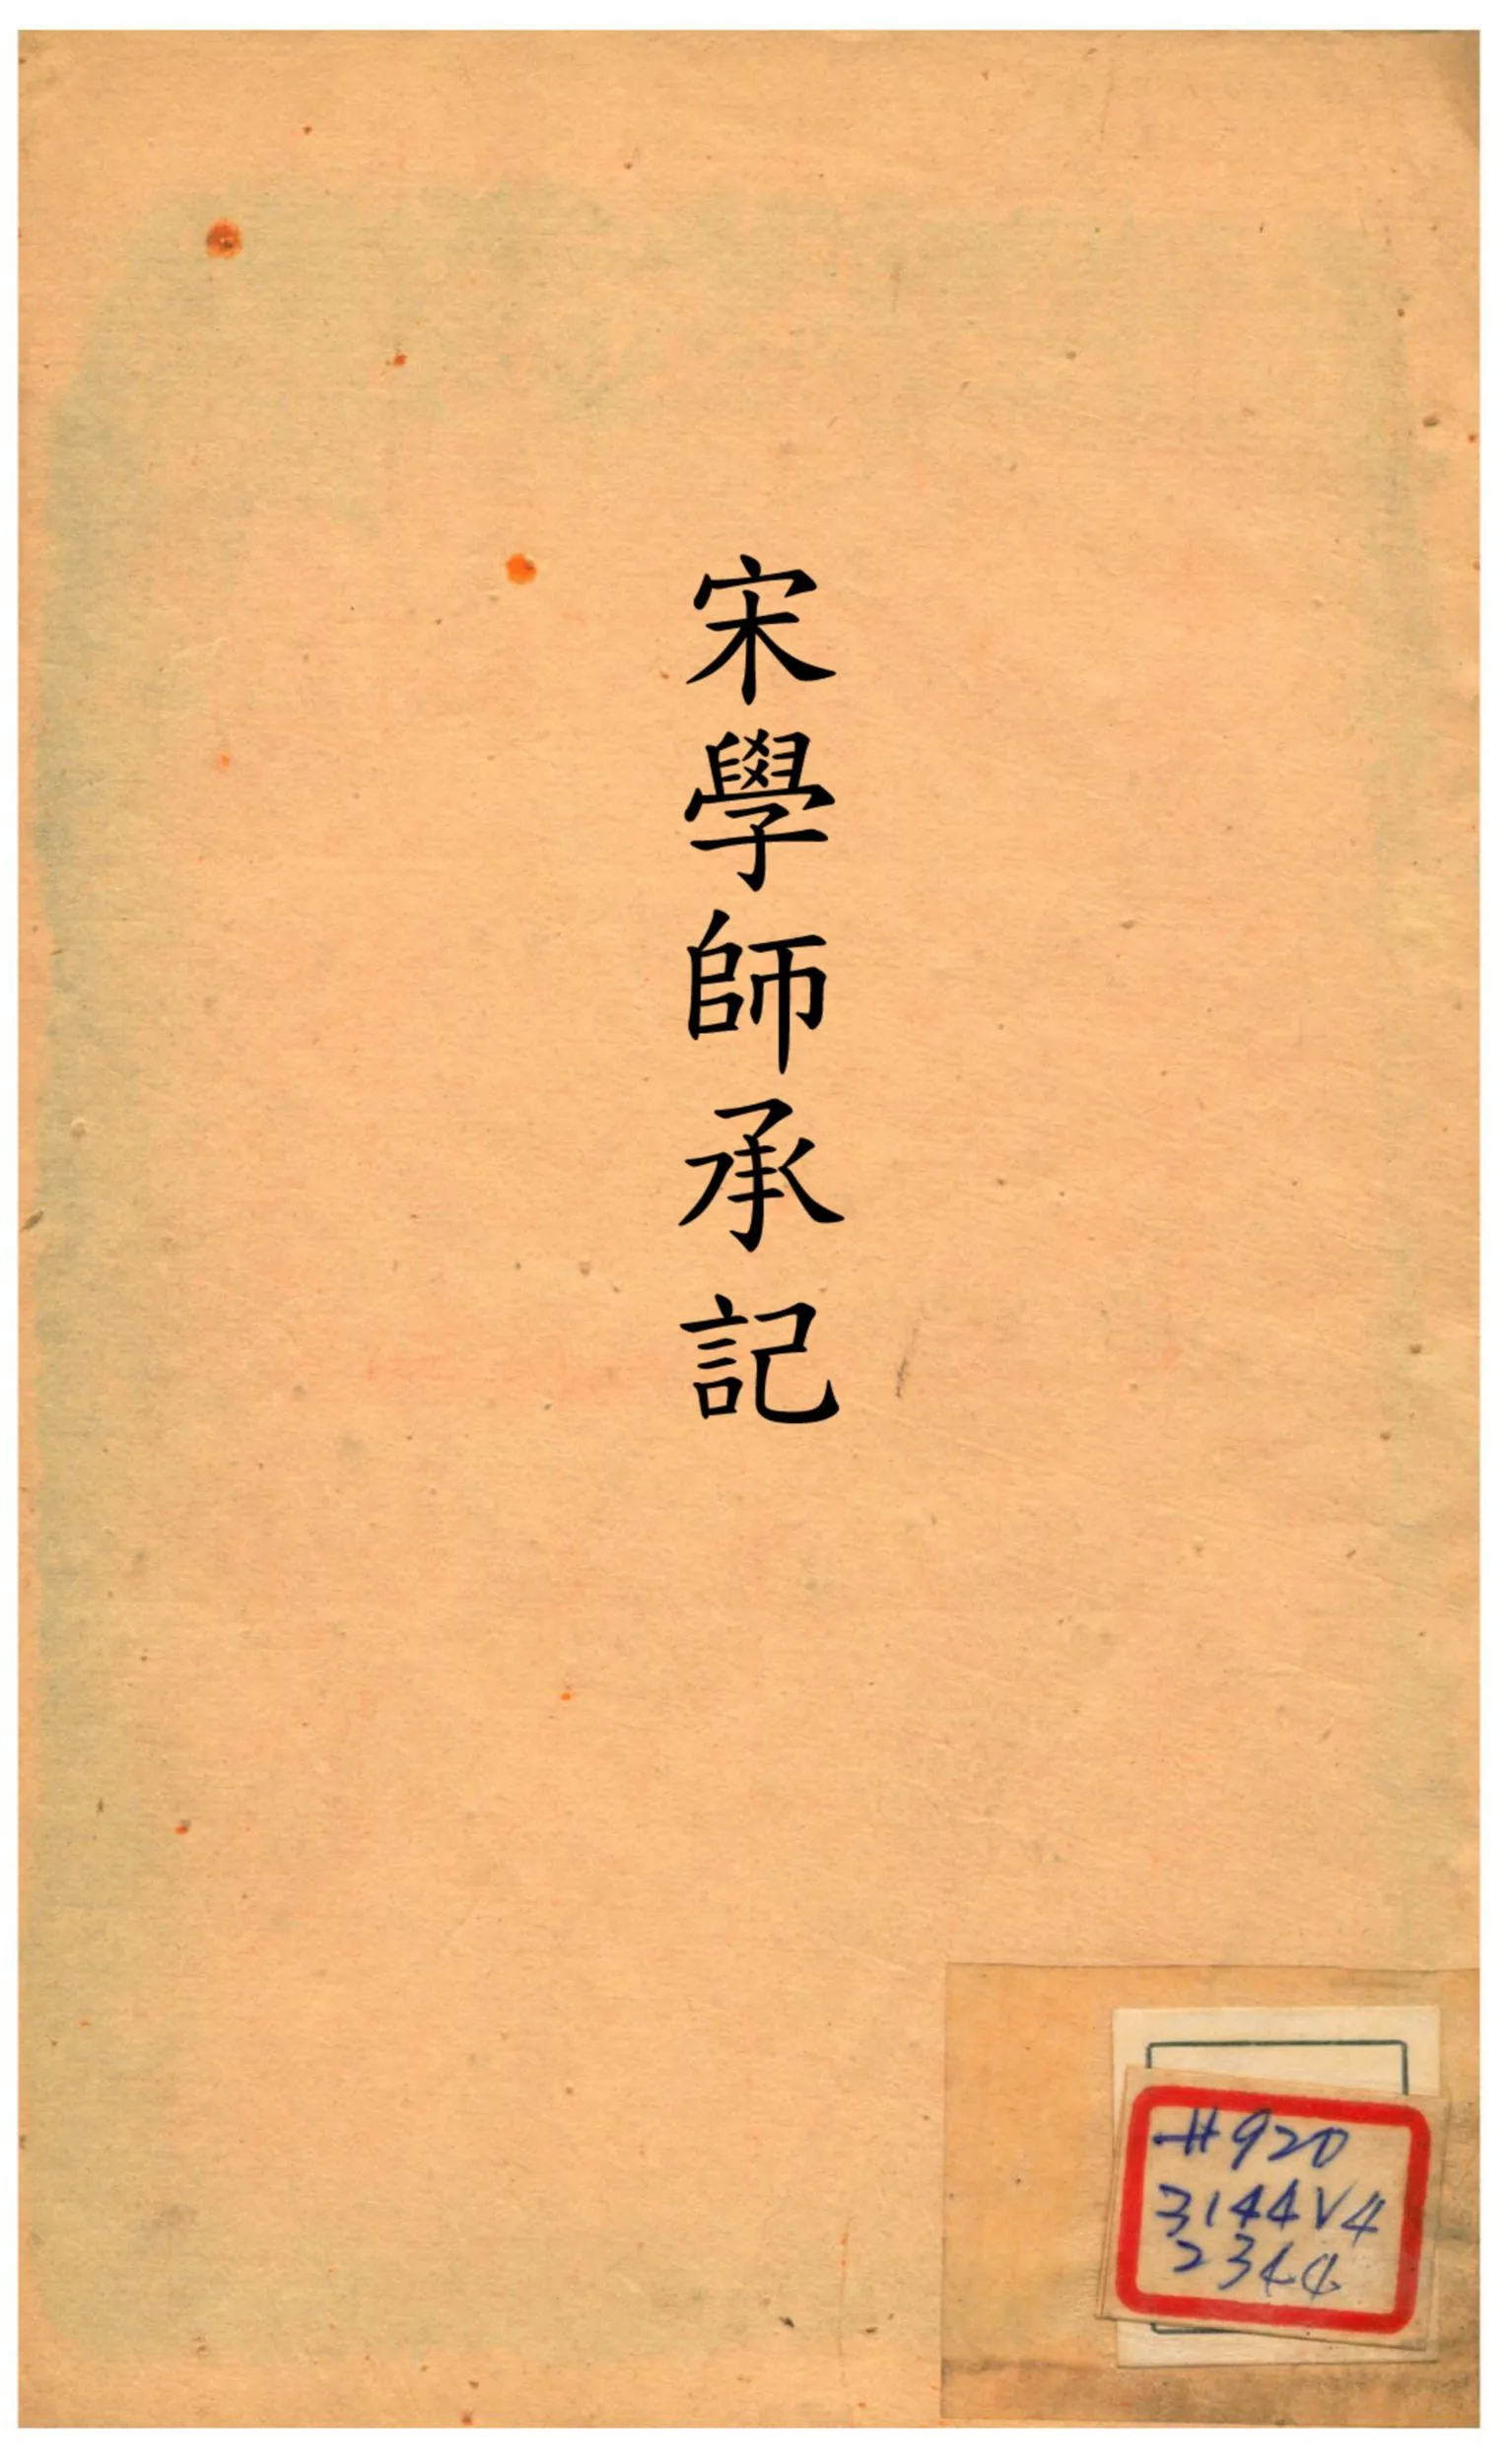 宋學師承記
#920
3144V4
2344